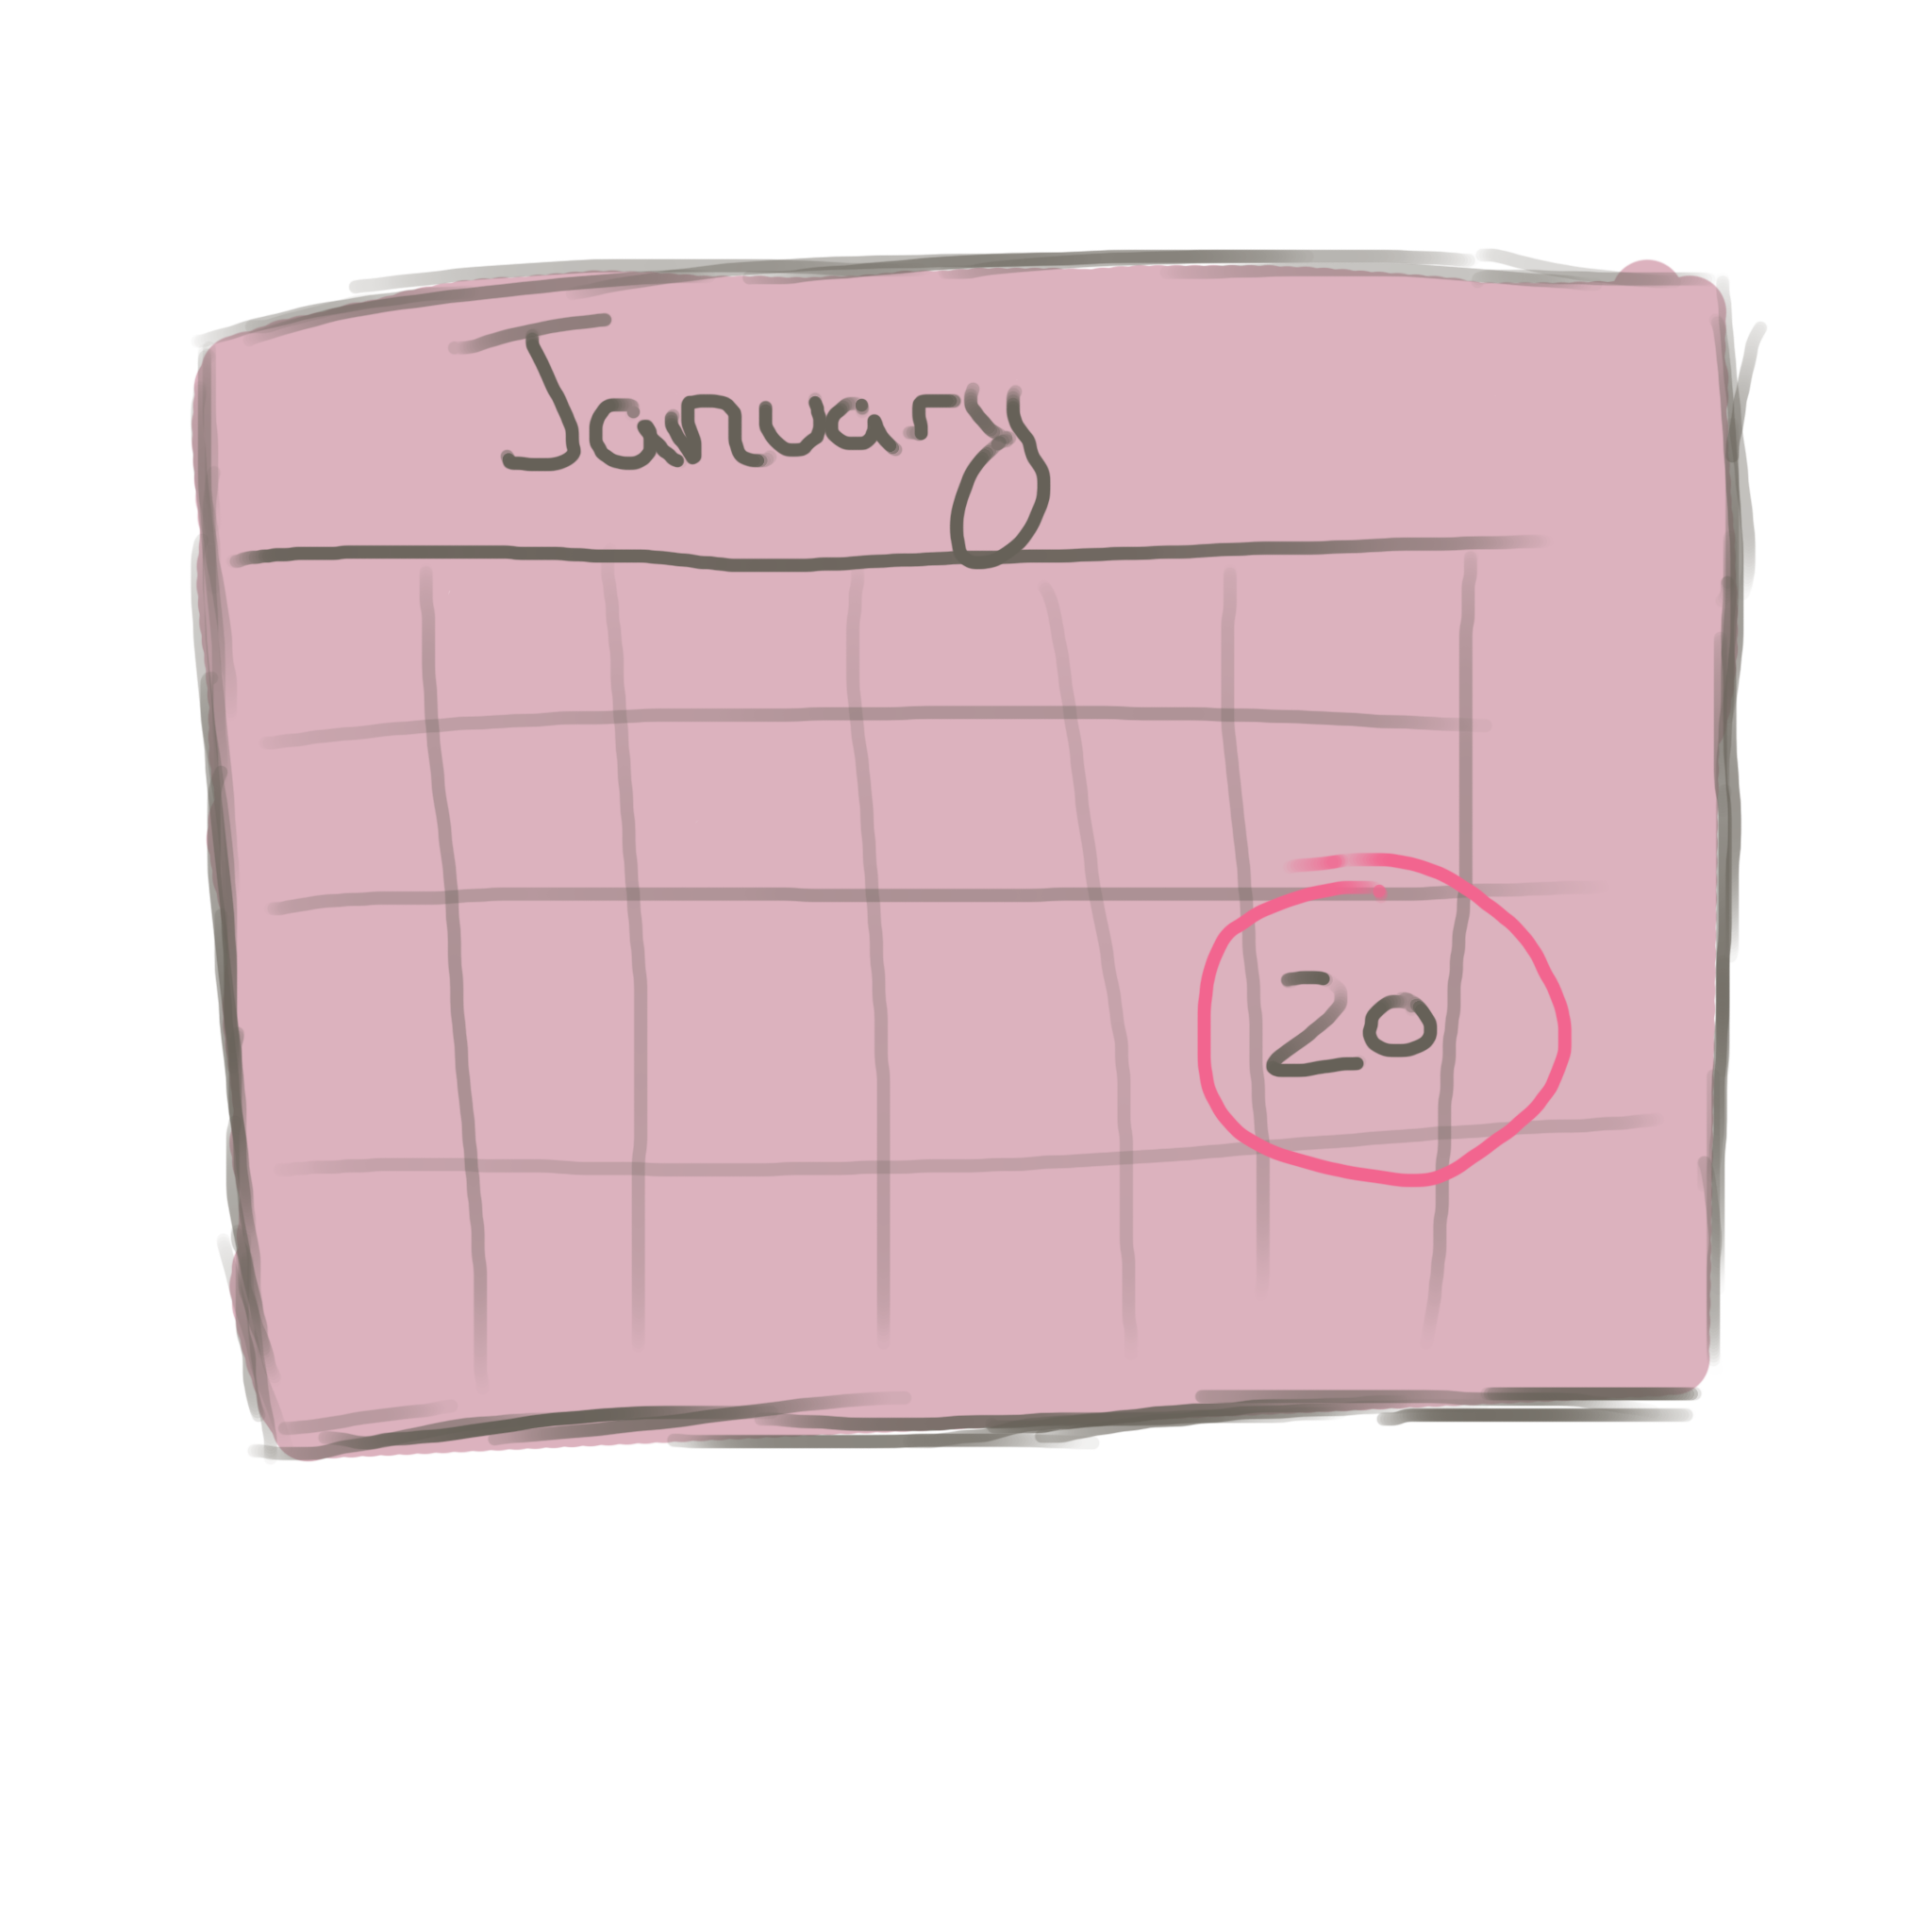 January
20